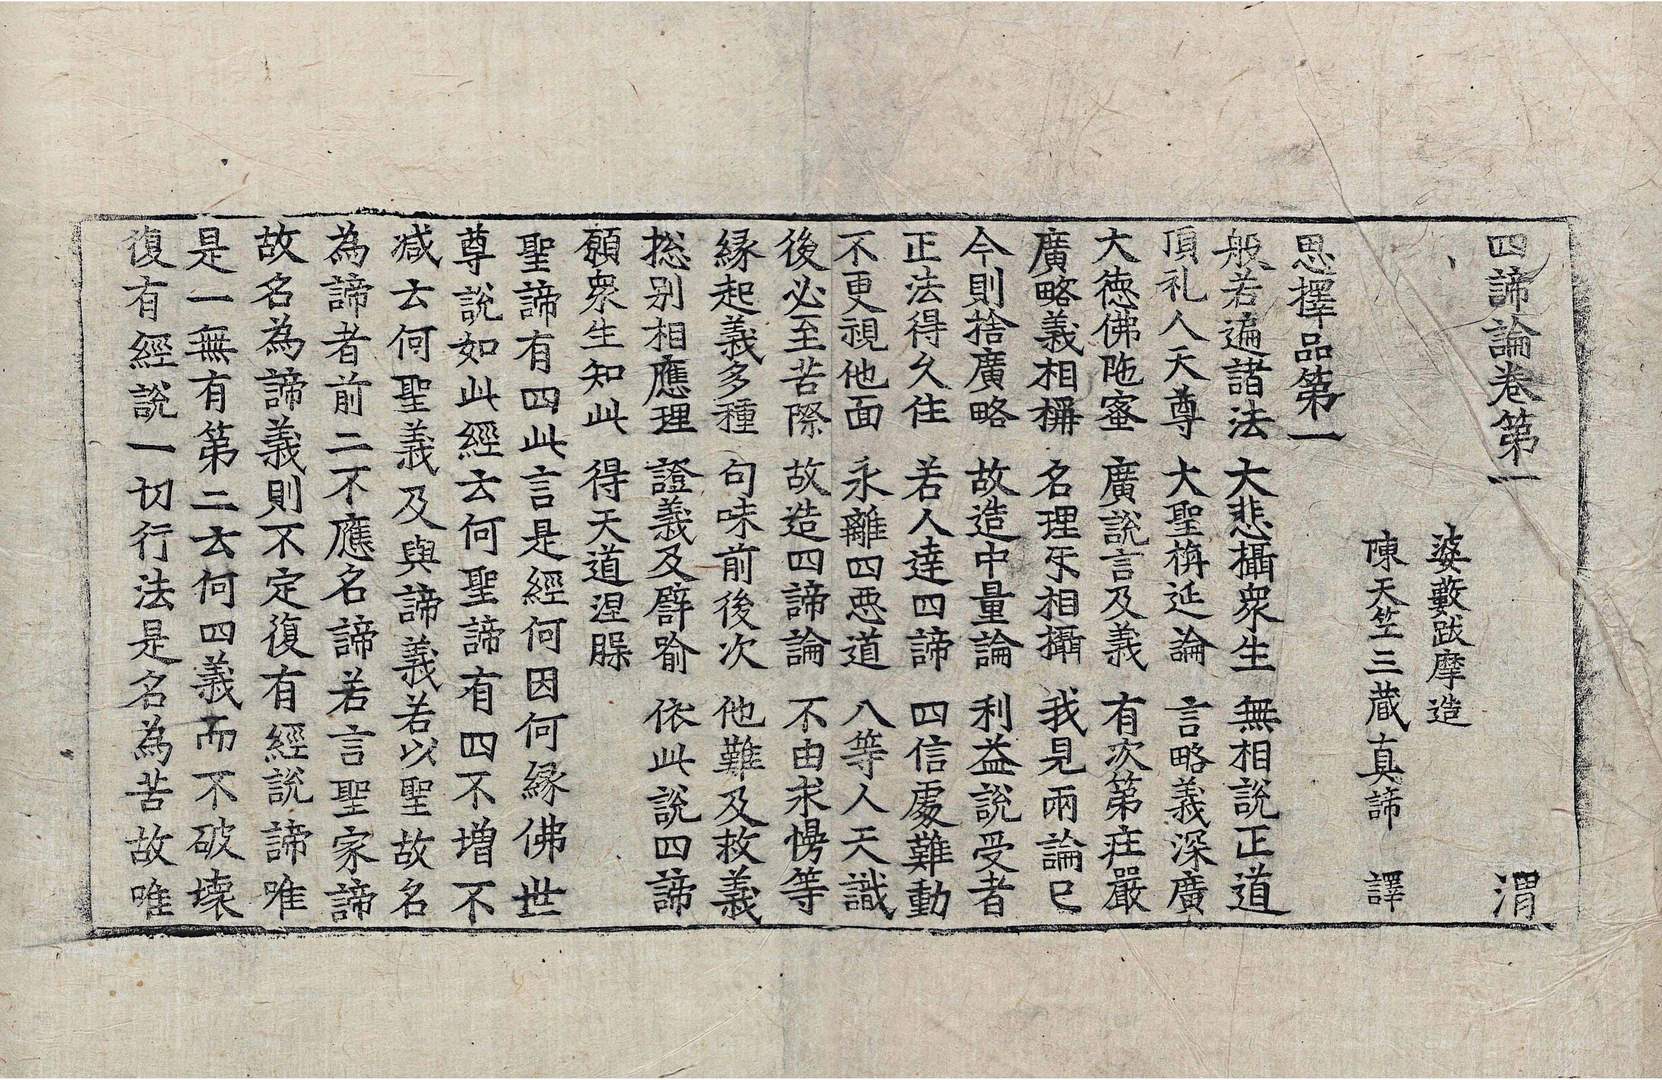 四諦論卷第一 渭
婆藪跋摩造
陳天竺三藏真諦 譯
思擇品第一
般若遍諸法 大悲攝衆生 無相說正道
頂礼人天尊 大聖旃延論 言略義深廣
大德佛陁蜜 廣說言及義 有次第莊嚴
廣略義相稱 名理㸦相攝 我見兩論已
今則捨廣略 故造中量論 利益說受者
正法得久住 若人達四諦 四信處難動
不更視他面 永離四惡道 八等人天識
後必至苦際 故造四諦論 不由求㥬等
緣起義多種 句味前後次 他難及救義
捴別相應理 證義及譬喻 依此說四諦
願衆生知此 得天道涅槃
聖諦有四此言是經何因何緣佛世
尊說如此經云何聖諦有四不增不
減云何聖義及與諦義若以聖故名
為諦者前二不應名諦若言聖家諦
故名為諦義則不定復有經說諦唯
是一無有第二云何四義而不破壞
復有經說一切行法是名為苦故唯